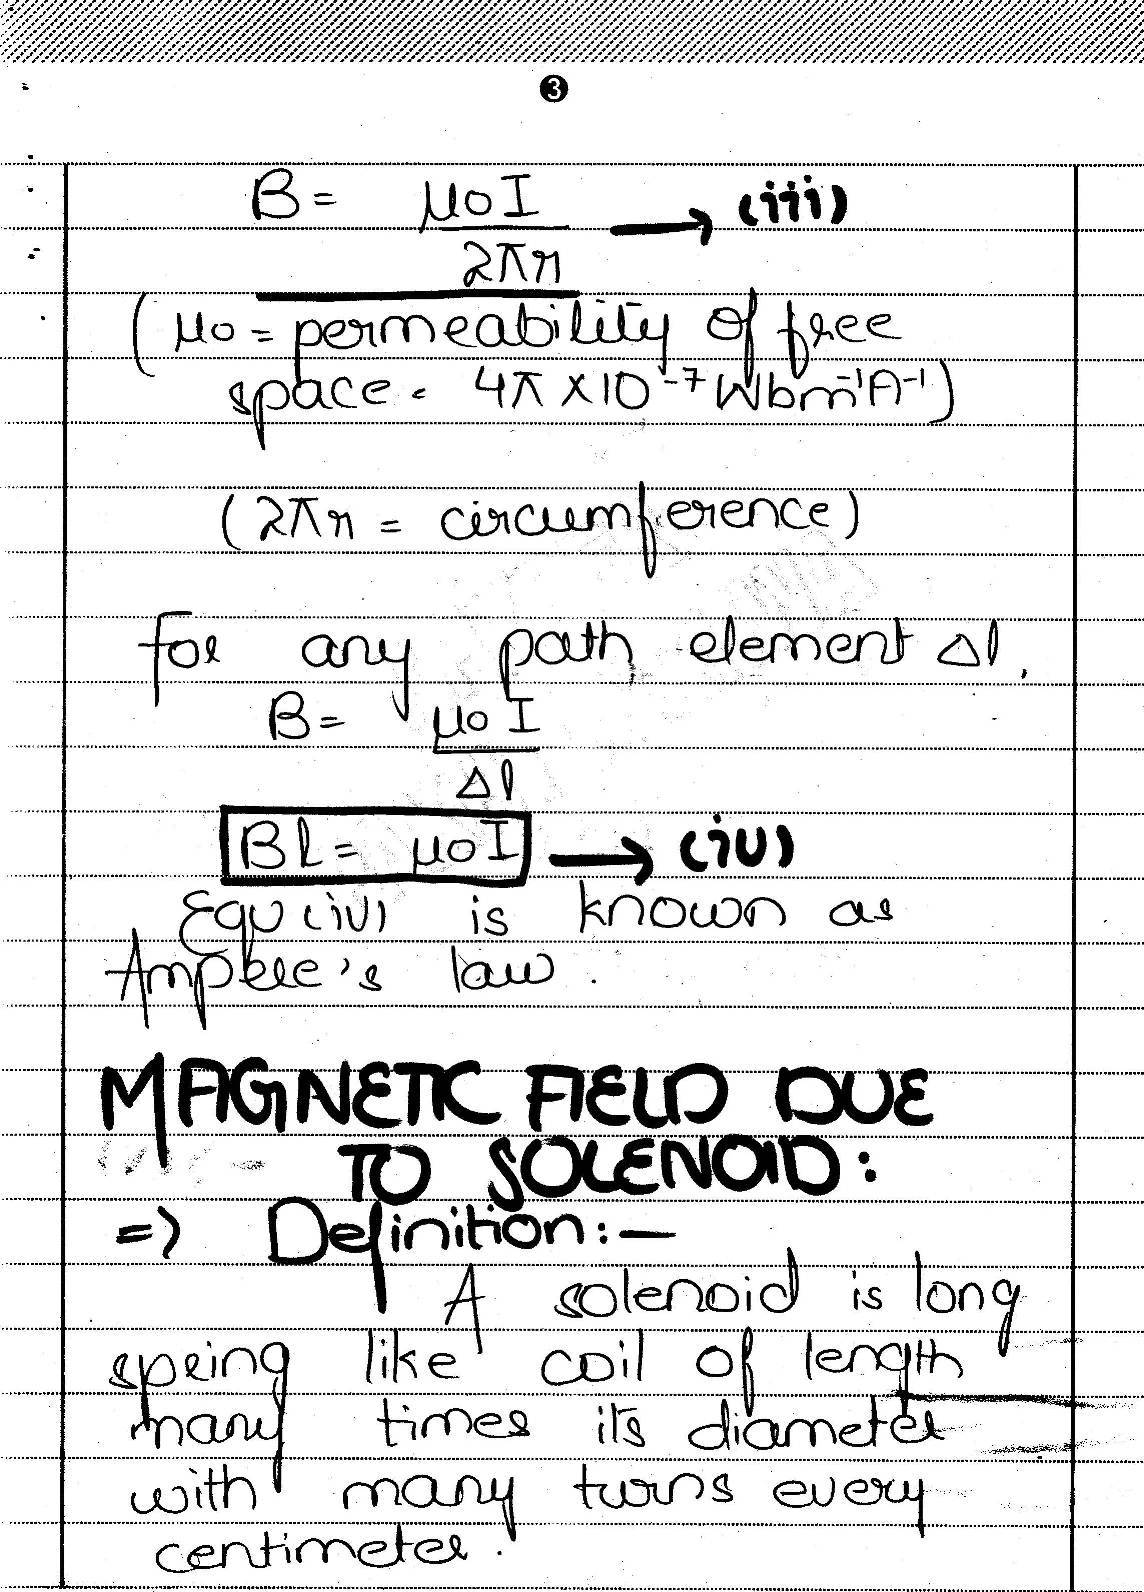 3
B = μoI / 2πr → (iii)
(μo = permeability of free
space = 4π × 10⁻⁷ Wbm⁻¹A⁻¹)
(2πr = circumference)
for any path element Δl,
B = μoI / Δl
Bl = μoI → (iv)
Equ (iv) is known as
Ampere's law.
MAGNETIC FIELD DUE
TO SOLENOID:
=> Definition:—
A solenoid is long
spring like coil of length
many times its diameter
with many turns every
centimeter.